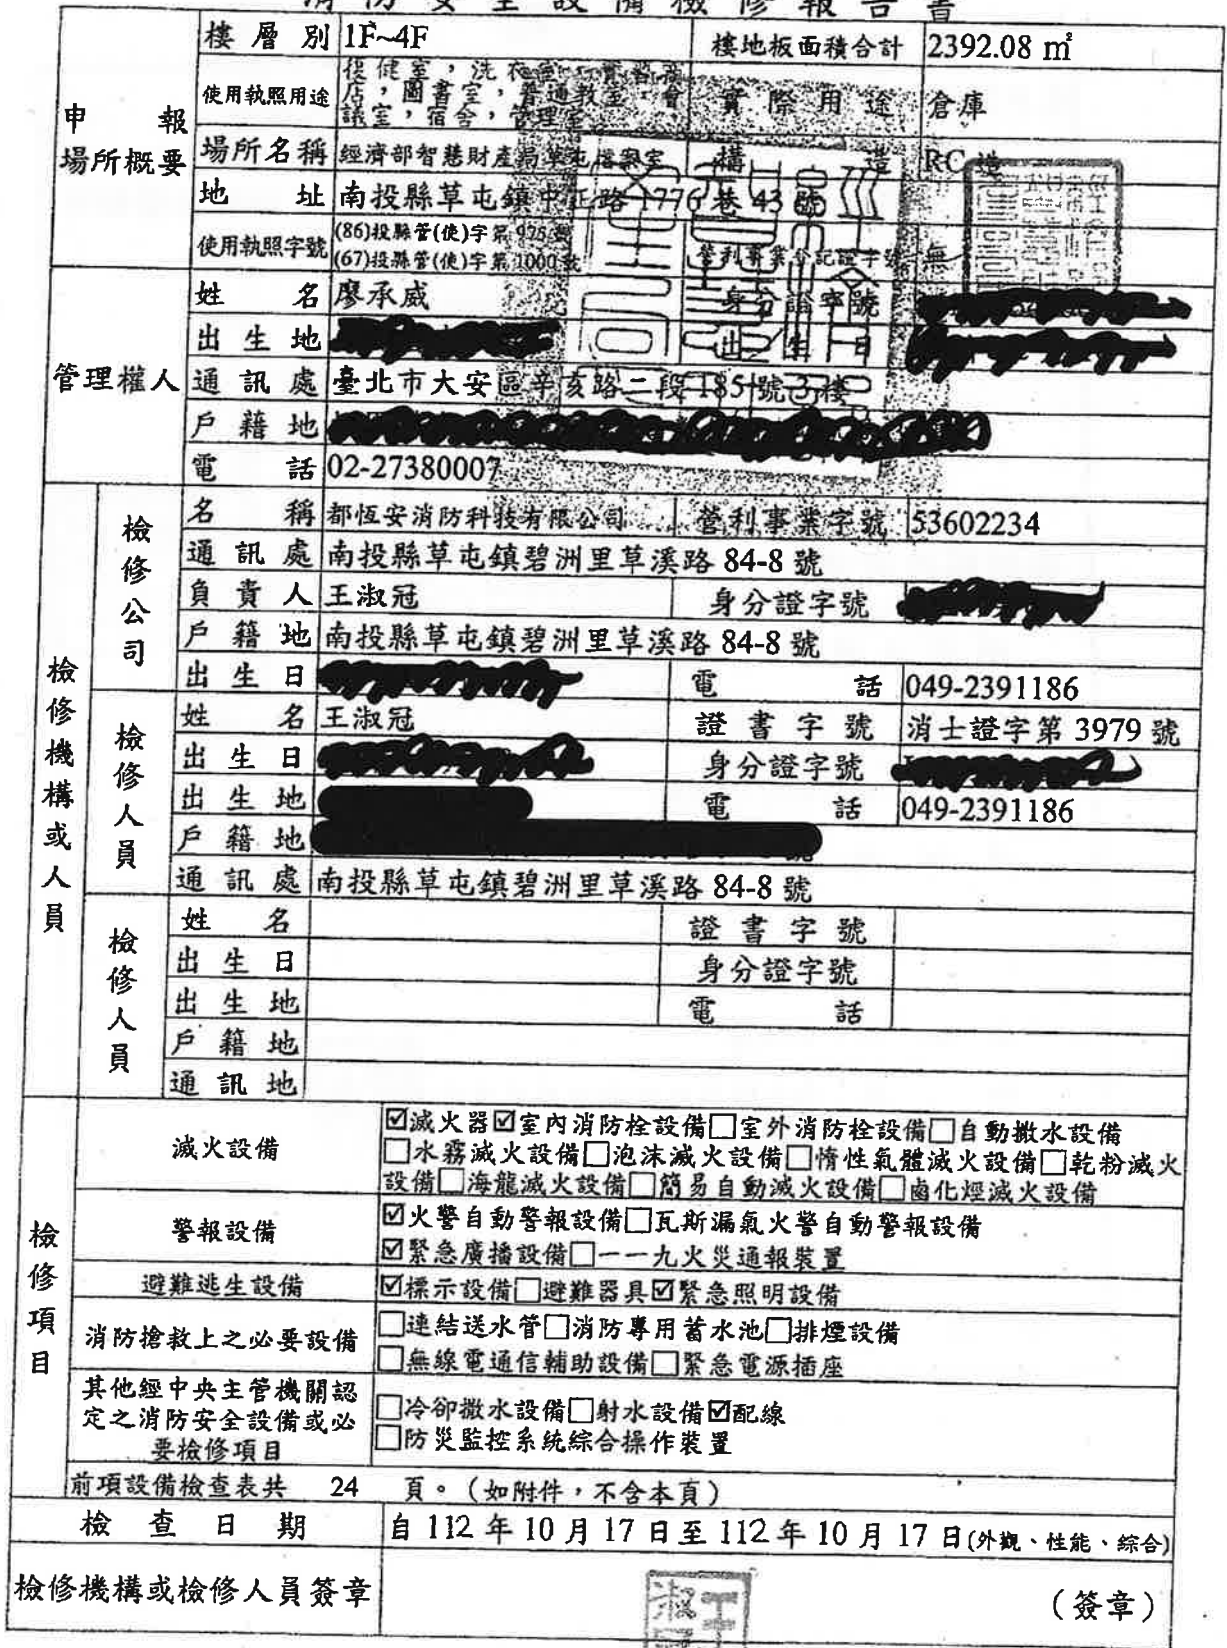 消防安全設備檢修報告書
申報場所概要
樓層別 1F~4F 樓地板面積合計 2392.08 ㎡
使用執照用途 復健室，洗衣
店，圖書室，普通教室，會
議室，宿舍，管理室
實際用途 倉庫
場所名稱 經濟部智慧財產局草屯檔案室 構造 RC 造
地址 南投縣草屯鎮中正路 1776 巷 43 號
使用執照字號 (86)投縣管(使)字第 975 號
(67)投縣管(使)字第 1000 號
營利事業登記證字號 無
管理權人
姓名 廖承威 身分證字號
出生地 出生日
通訊處 臺北市大安區辛亥路二段 185 號 3 樓
戶籍地
電話 02-27380007
檢修機構或人員
檢修公司
名稱 都恆安消防科技有限公司 營利事業字號 53602234
通訊處 南投縣草屯鎮碧洲里草溪路 84-8 號
負責人 王淑冠 身分證字號
戶籍地 南投縣草屯鎮碧洲里草溪路 84-8 號
出生日 電話 049-2391186
檢修人員
姓名 王淑冠 證書字號 消士證字第 3979 號
出生日 身分證字號
出生地 電話 049-2391186
戶籍地 號
通訊處 南投縣草屯鎮碧洲里草溪路 84-8 號
檢修人員
姓名 證書字號
出生日 身分證字號
出生地 電話
戶籍地
通訊地
檢修項目
滅火設備
☑滅火器☑室內消防栓設備□室外消防栓設備□自動撒水設備
□水霧滅火設備□泡沫滅火設備□惰性氣體滅火設備□乾粉滅火
設備□海龍滅火設備□簡易自動滅火設備□鹵化烴滅火設備
警報設備
☑火警自動警報設備□瓦斯漏氣火警自動警報設備
☑緊急廣播設備□一一九火災通報裝置
避難逃生設備 ☑標示設備□避難器具☑緊急照明設備
消防搶救上之必要設備
□連結送水管□消防專用蓄水池□排煙設備
□無線電通信輔助設備□緊急電源插座
其他經中央主管機關認
定之消防安全設備或必
要檢修項目
□冷卻撒水設備□射水設備☑配線
□防災監控系統綜合操作裝置
前項設備檢查表共 24 頁。（如附件，不含本頁）
檢查日期 自 112 年 10 月 17 日至 112 年 10 月 17 日(外觀、性能、綜合)
檢修機構或檢修人員簽章 （簽章）
王淑冠